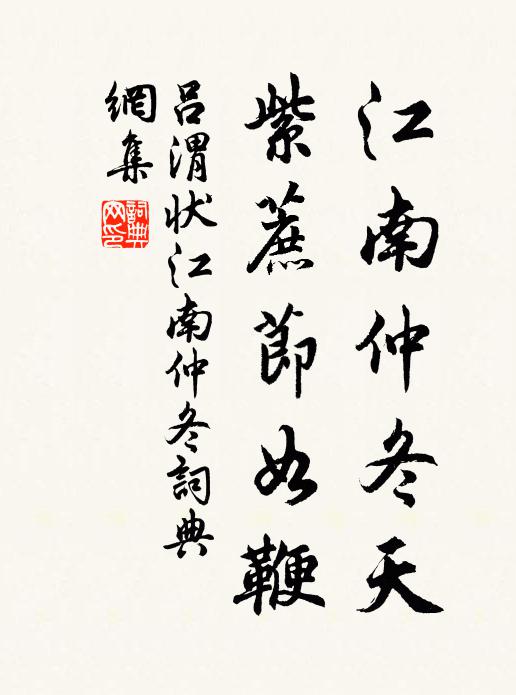 江南仲冬天
紫蔗節如鞭
吕渭状江南仲冬詞典
網集
詞典網印